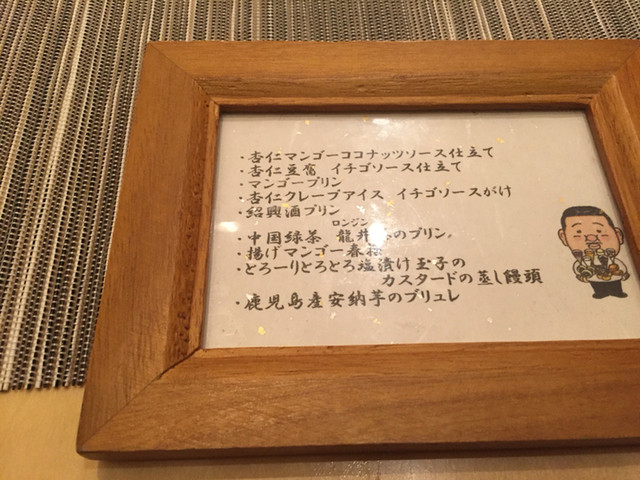 ・杏仁マンゴーココナッツソース仕立て
・杏仁豆腐 イチゴソース仕立て
・マンゴープリン
・杏仁クレープアイス イチゴソースがけ
・紹興酒プリン
ロンジン
・中国緑茶 龍井 のプリン。
・揚げマンゴー春巻
・とろーりとろとろ塩漬け玉子の
カスタードの蒸し饅頭
・鹿児島産安納芋のブリュレ